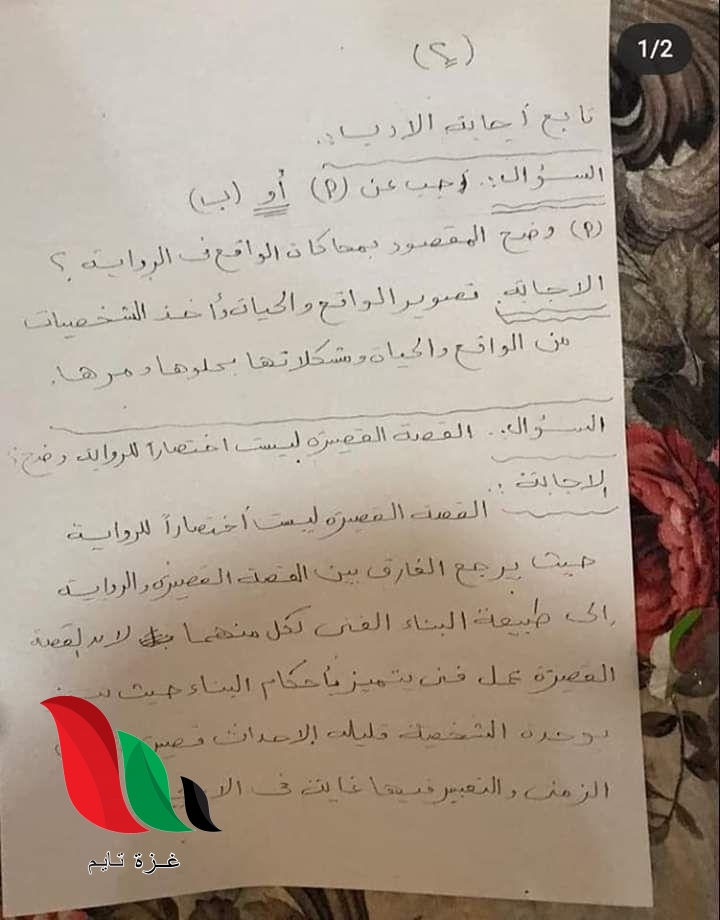 1/2
(٢)
تابع أجابة الأدب :.
السؤال :. أجب عن (P) أو (ب)
(P) وضح المقصود بمحاكاة الواقع فى الرواية ؟
الاجابة. تصوير الواقع والحياة وأخذ الشخصيات
من الواقع والحياة ومشكلاتها بحلوها ومرها.
السؤال :. القصة القصيرة ليست اختصاراً للرواية وضح؟
الاجابة :.
القصة القصيرة ليست أختصاراً للرواية
حيث يرجع الفارق بين القصة القصيرة والرواية
إلى طبيعة البناء الفنى لكل منهما لان القصة
القصيرة عمل فنى يتميز بأحكام البناء حيث
بوحدة الشخصية قليلة الاحداث
الزمنى والتعبير فيها غاية فى
غزة تايم